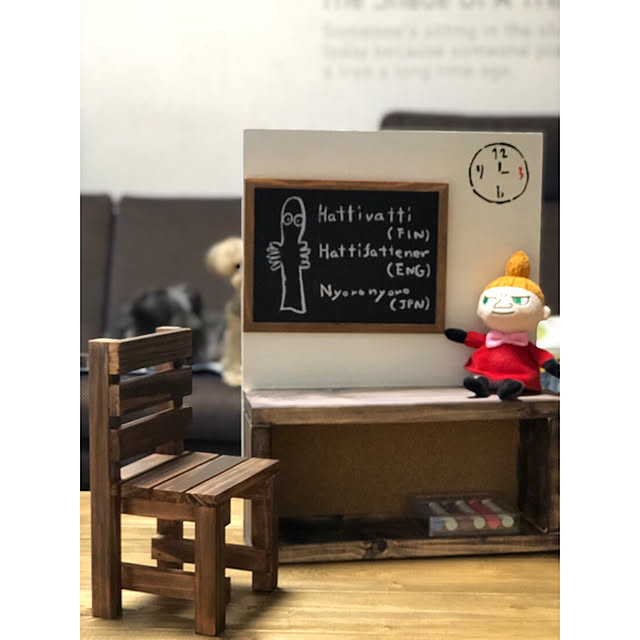 The Shade of A Tre
Someone's sitting in the sh
today because someone pla
a tree a long time ago.
12
9 3
6
Hattivatti
(FIN)
Hattifattener
(ENG)
Nyoronyoro
(JPN)